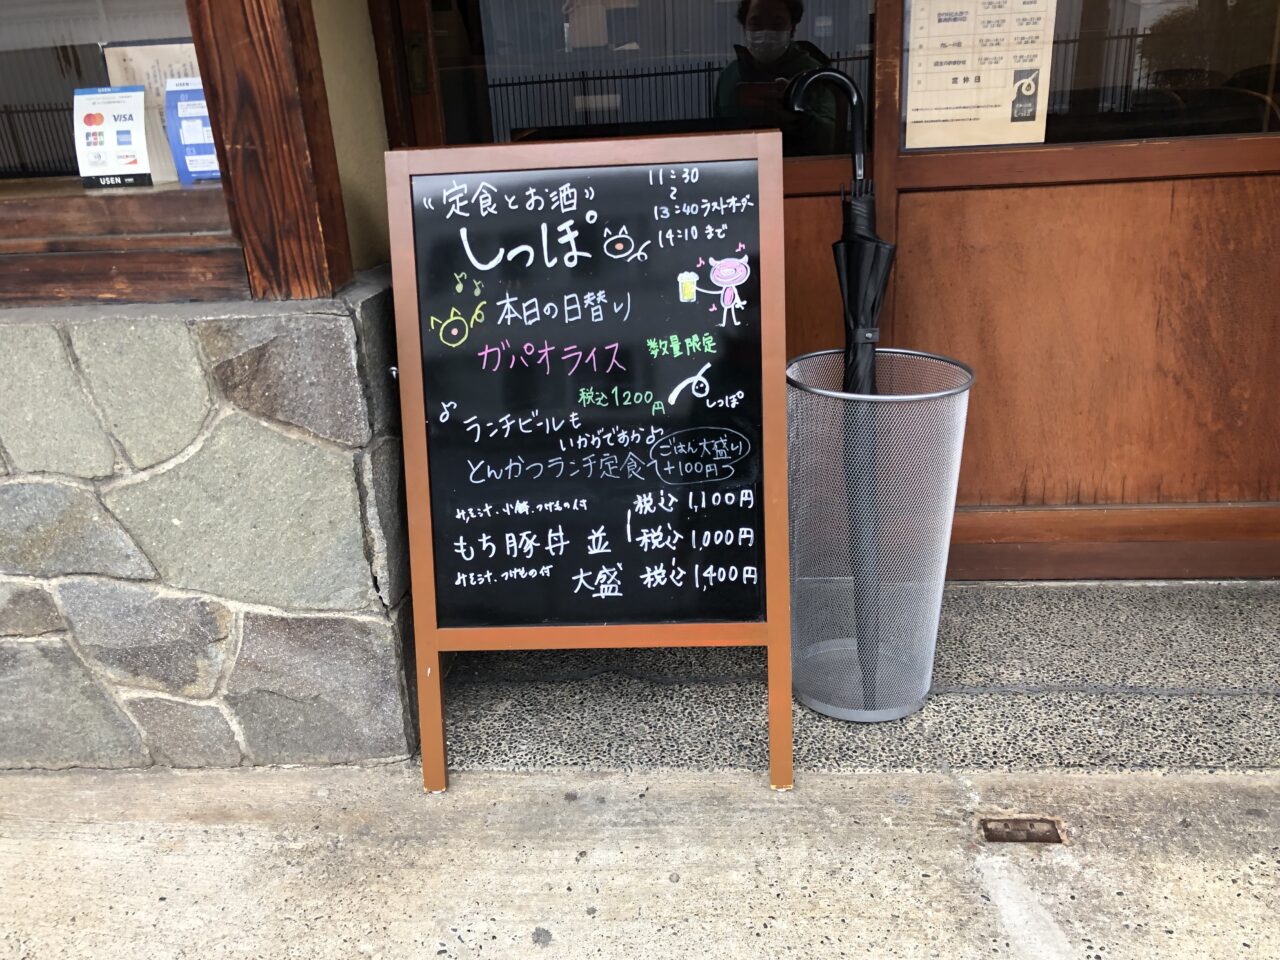 USEN
VISA
USEN
USEN
01
03
定休日
しっぽ
“定食とお酒”
しっぽ
11:30
〜
13:40ラストオーダー
14:10まで
本日の日替り
ガパオライス 数量限定
税込1200円
しっぽ
ランチビールも
いかがですか
とんかつランチ定食
ごはん大盛り
+100円
みそ汁、小鉢、つけもの付 税込1,100円
もち豚丼 並 税込1,000円
みそ汁、つけもの付
大盛 税込1,400円